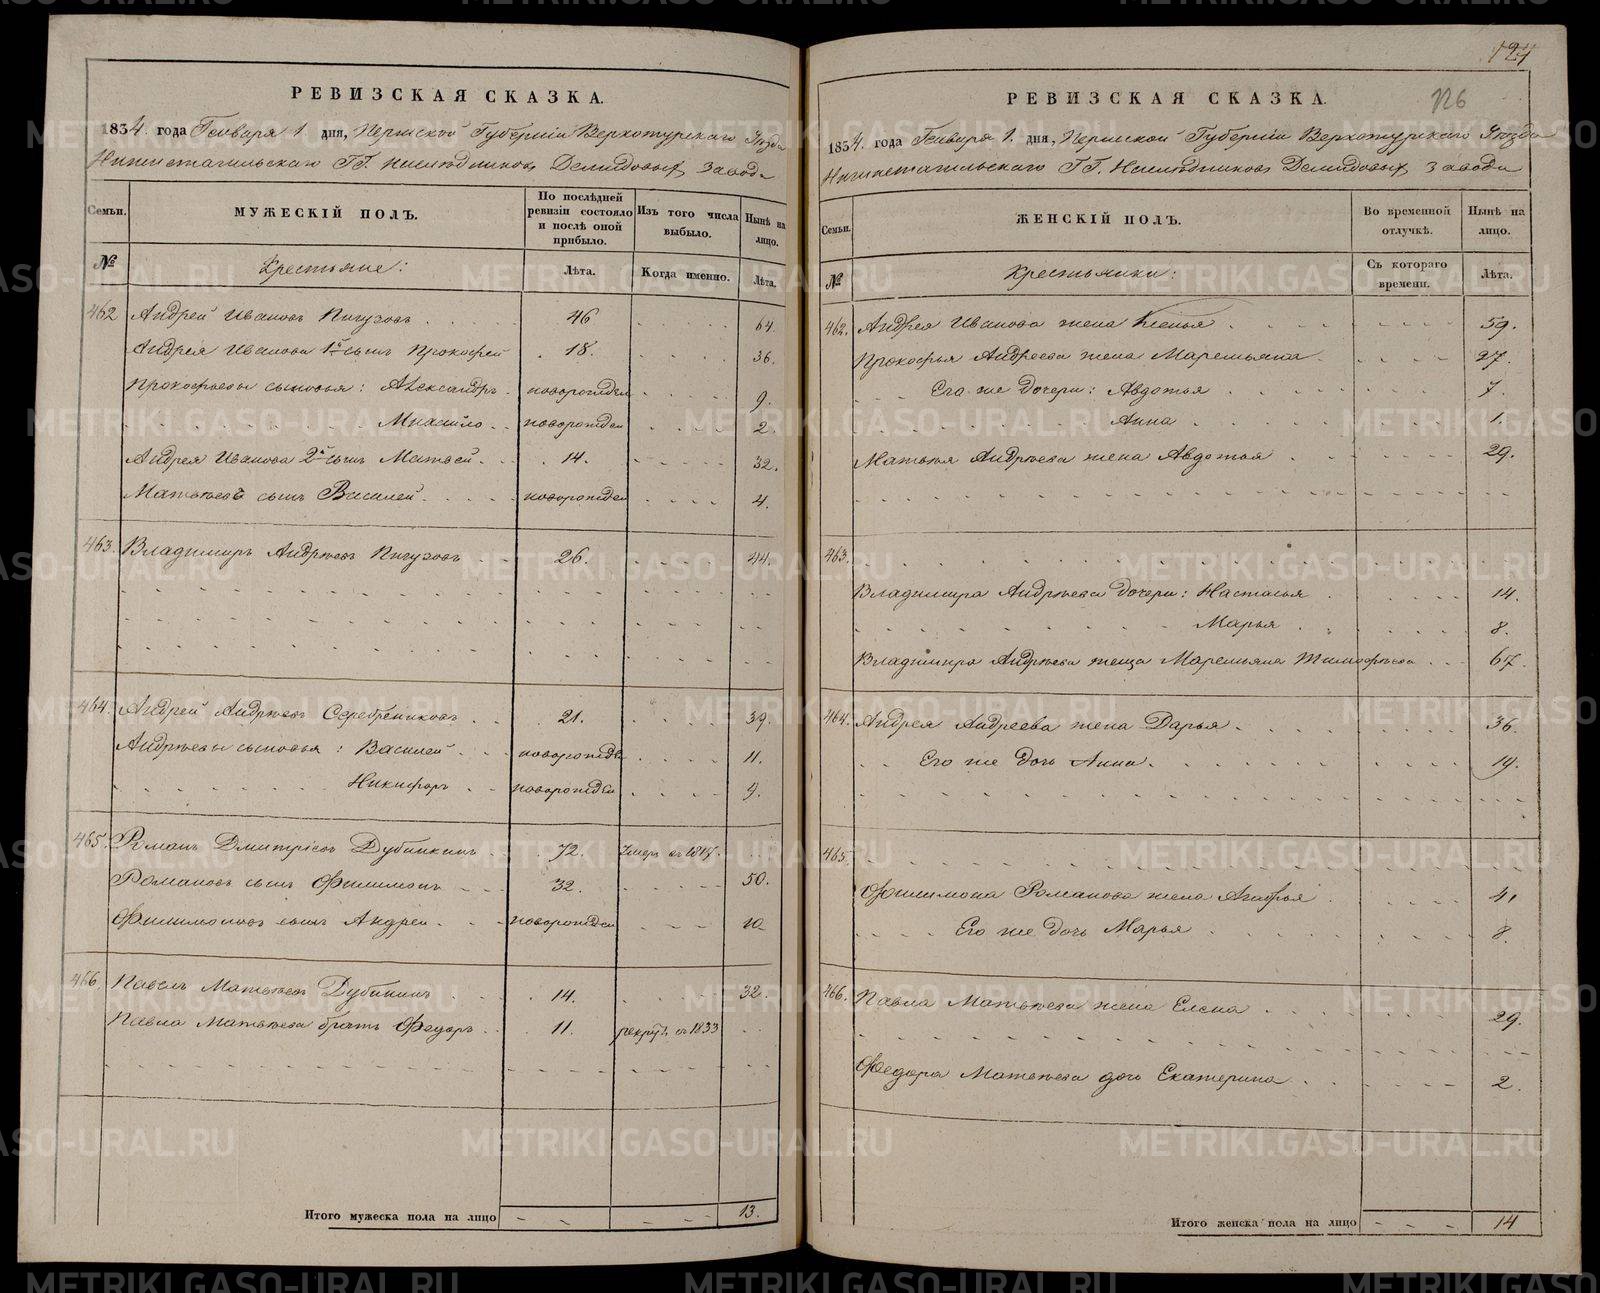 РЕВИЗСКАЯ СКАЗКА.
1834. года Генваря 1. дня, Пермской Губерніи Верхотурскаго Уѣзда
Нижнетагильскаго ГГ. Наслѣдниковъ Демидовыхъ завода
Семьи.
МУЖЕСКІЙ ПОЛЪ.
По послѣдней ревизіи состояло и послѣ оной прибыло.
Изъ того числа выбыло.
Нынѣ на лицо.
№
Крестьяне:
Лѣта.
Когда именно.
Лѣта.
462 Андрей Ивановъ Пигузовъ 46 64.
Андрея Иванова 1й сынъ Прокофей 18. 36.
Прокофьевы сыновья: Александръ новорожден 9.
Михайло новорожден 2.
Андрея Иванова 2й сынъ Матвей 14. 32.
Матвѣевъ сынъ Василей новорожден 4.
463. Владимиръ Андрѣевъ Пигузовъ 26. 44.
464. Андрей Андрѣевъ Серебрениковъ 21. 39.
Андрѣевы сыновья: Василей новорожде 11.
Никифоръ новорожден 9.
465. Романъ Дмитріевъ Дубинкинъ 72. умеръ въ 1817.
Романовъ сынъ Филимонъ 32. 50.
Филимоновъ сынъ Андрей новорожден 10
466. Павелъ Матвѣевъ Дубинкинъ 14. 32.
Павла Матвѣева братъ Федоръ 11. рекрутъ въ 1833
Итого мужеска пола на лицо 13.
124
126
РЕВИЗСКАЯ СКАЗКА.
1834. года Генваря 1. дня, Пермской Губерніи Верхотурскаго Уѣзда
Нижнетагильскаго ГГ. Наслѣдниковъ Демидовыхъ завода
Семьи.
ЖЕНСКІЙ ПОЛЪ.
Во временной отлучкѣ.
Нынѣ на лицо.
№
Крестьянки:
Съ котораго времени.
Лѣта.
462. Андрея Иванова жена Ксенья 59.
Прокофья Андреева жена Маремьяна 27.
Его же дочери: Авдотья 7.
Анна 1.
Матвея Андрѣева жена Авдотья 29.
463.
Владимира Андрѣева дочери: Настасья 14.
Марья 8.
Владимира Андрѣева теща Маремьяна Тимофѣева 67.
464. Андрея Андреева жена Дарья 36.
Его же дочь Анна. 19.
465.
Филимона Романова жена Агафья 41
Его же дочь Марья 8.
466. Павла Матвѣева жена Елена 29.
Федора Матвѣева дочь Екатерина 2.
Итого женска пола на лицо 14
METRIKI.GASO-URAL.RU